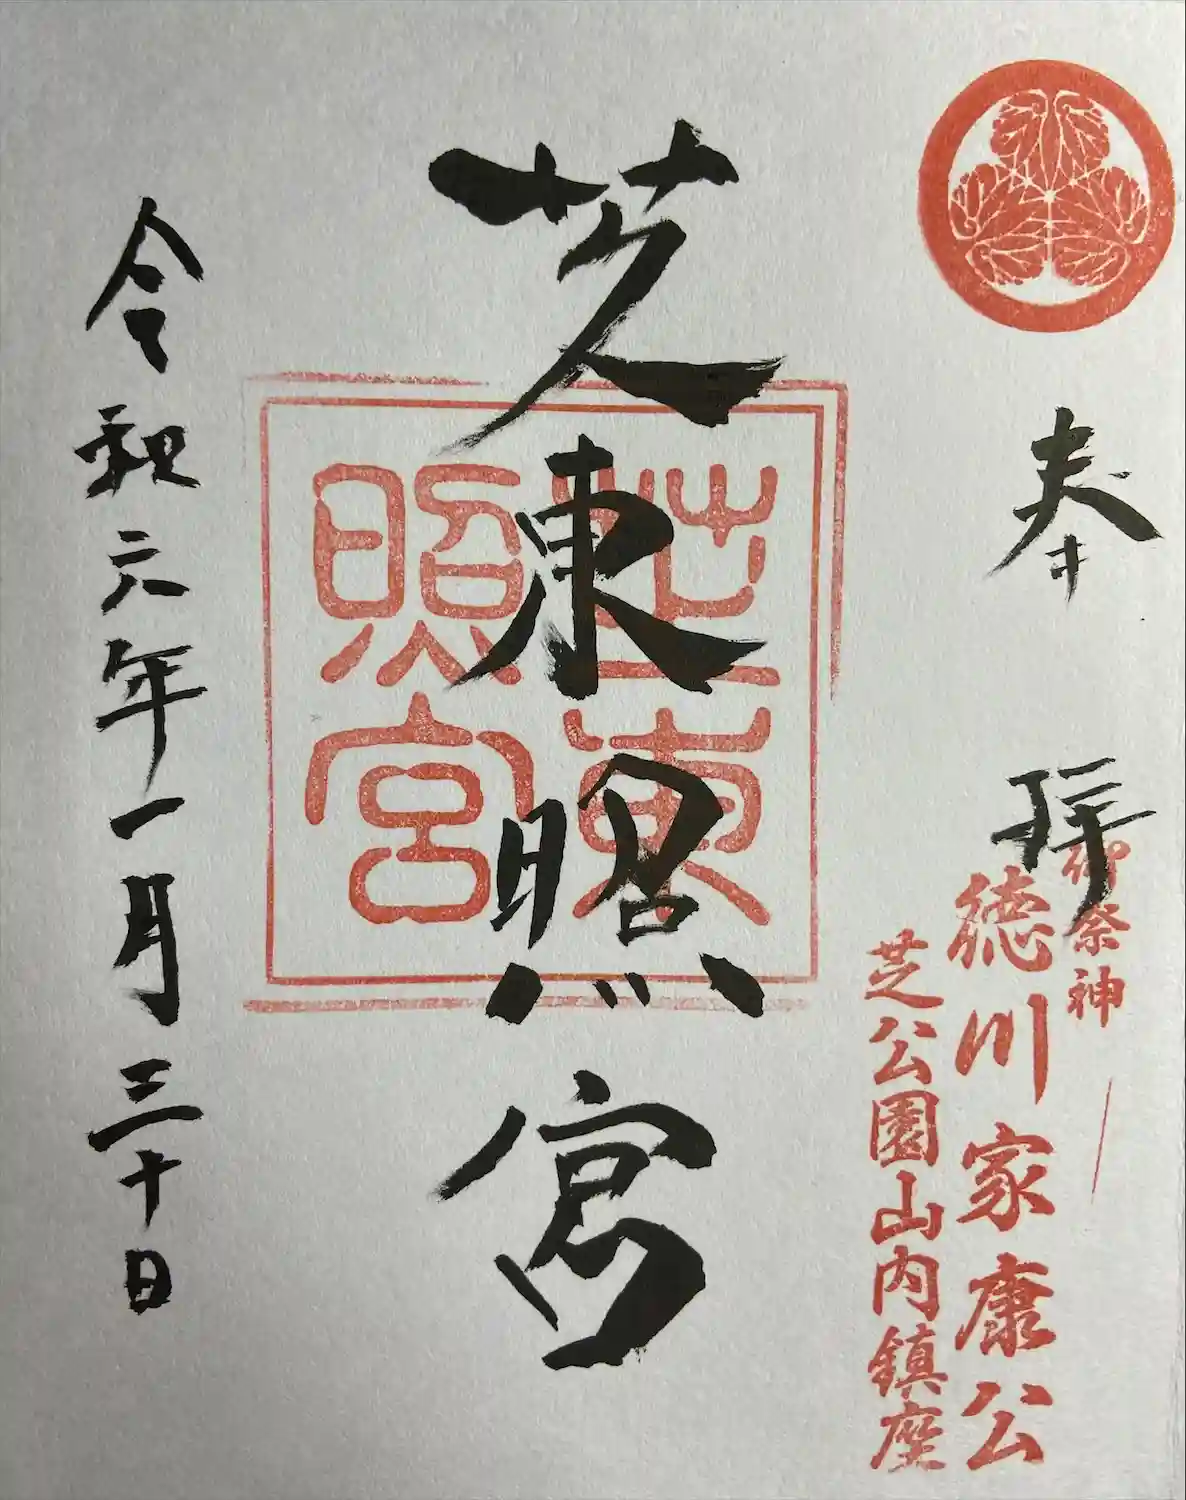 奉拝
御祭神
徳川家康公
芝公園山内鎮座
芝東照宮
芝東
照宮
令和六年一月三十日